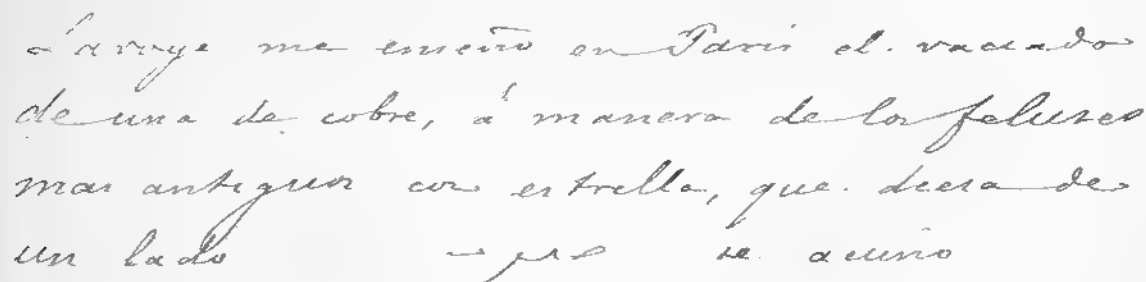 Lavoye me enseño en Paris el vaciado
de una de cobre, á manera de los feluses
mas antiguos con estrella, que decia de
un lado se acuño